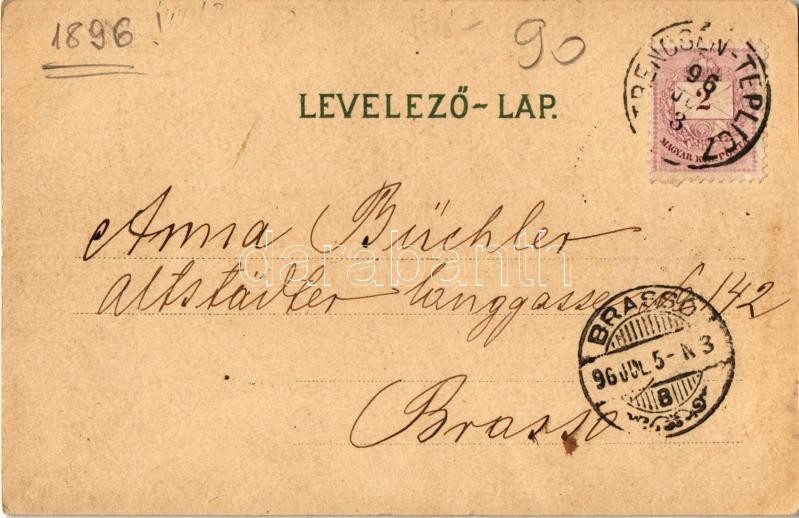 1896!
90
TRENCSÉN-TEPLICZ
96
JUL
3
2
MAGYAR KIR. POSTA
LEVELEZŐ-LAP.
Anna Büchler
Altstädter Langgasse 142
Brassó
BRASSÓ
96 JUL. 5 - N 3
B
darabanth